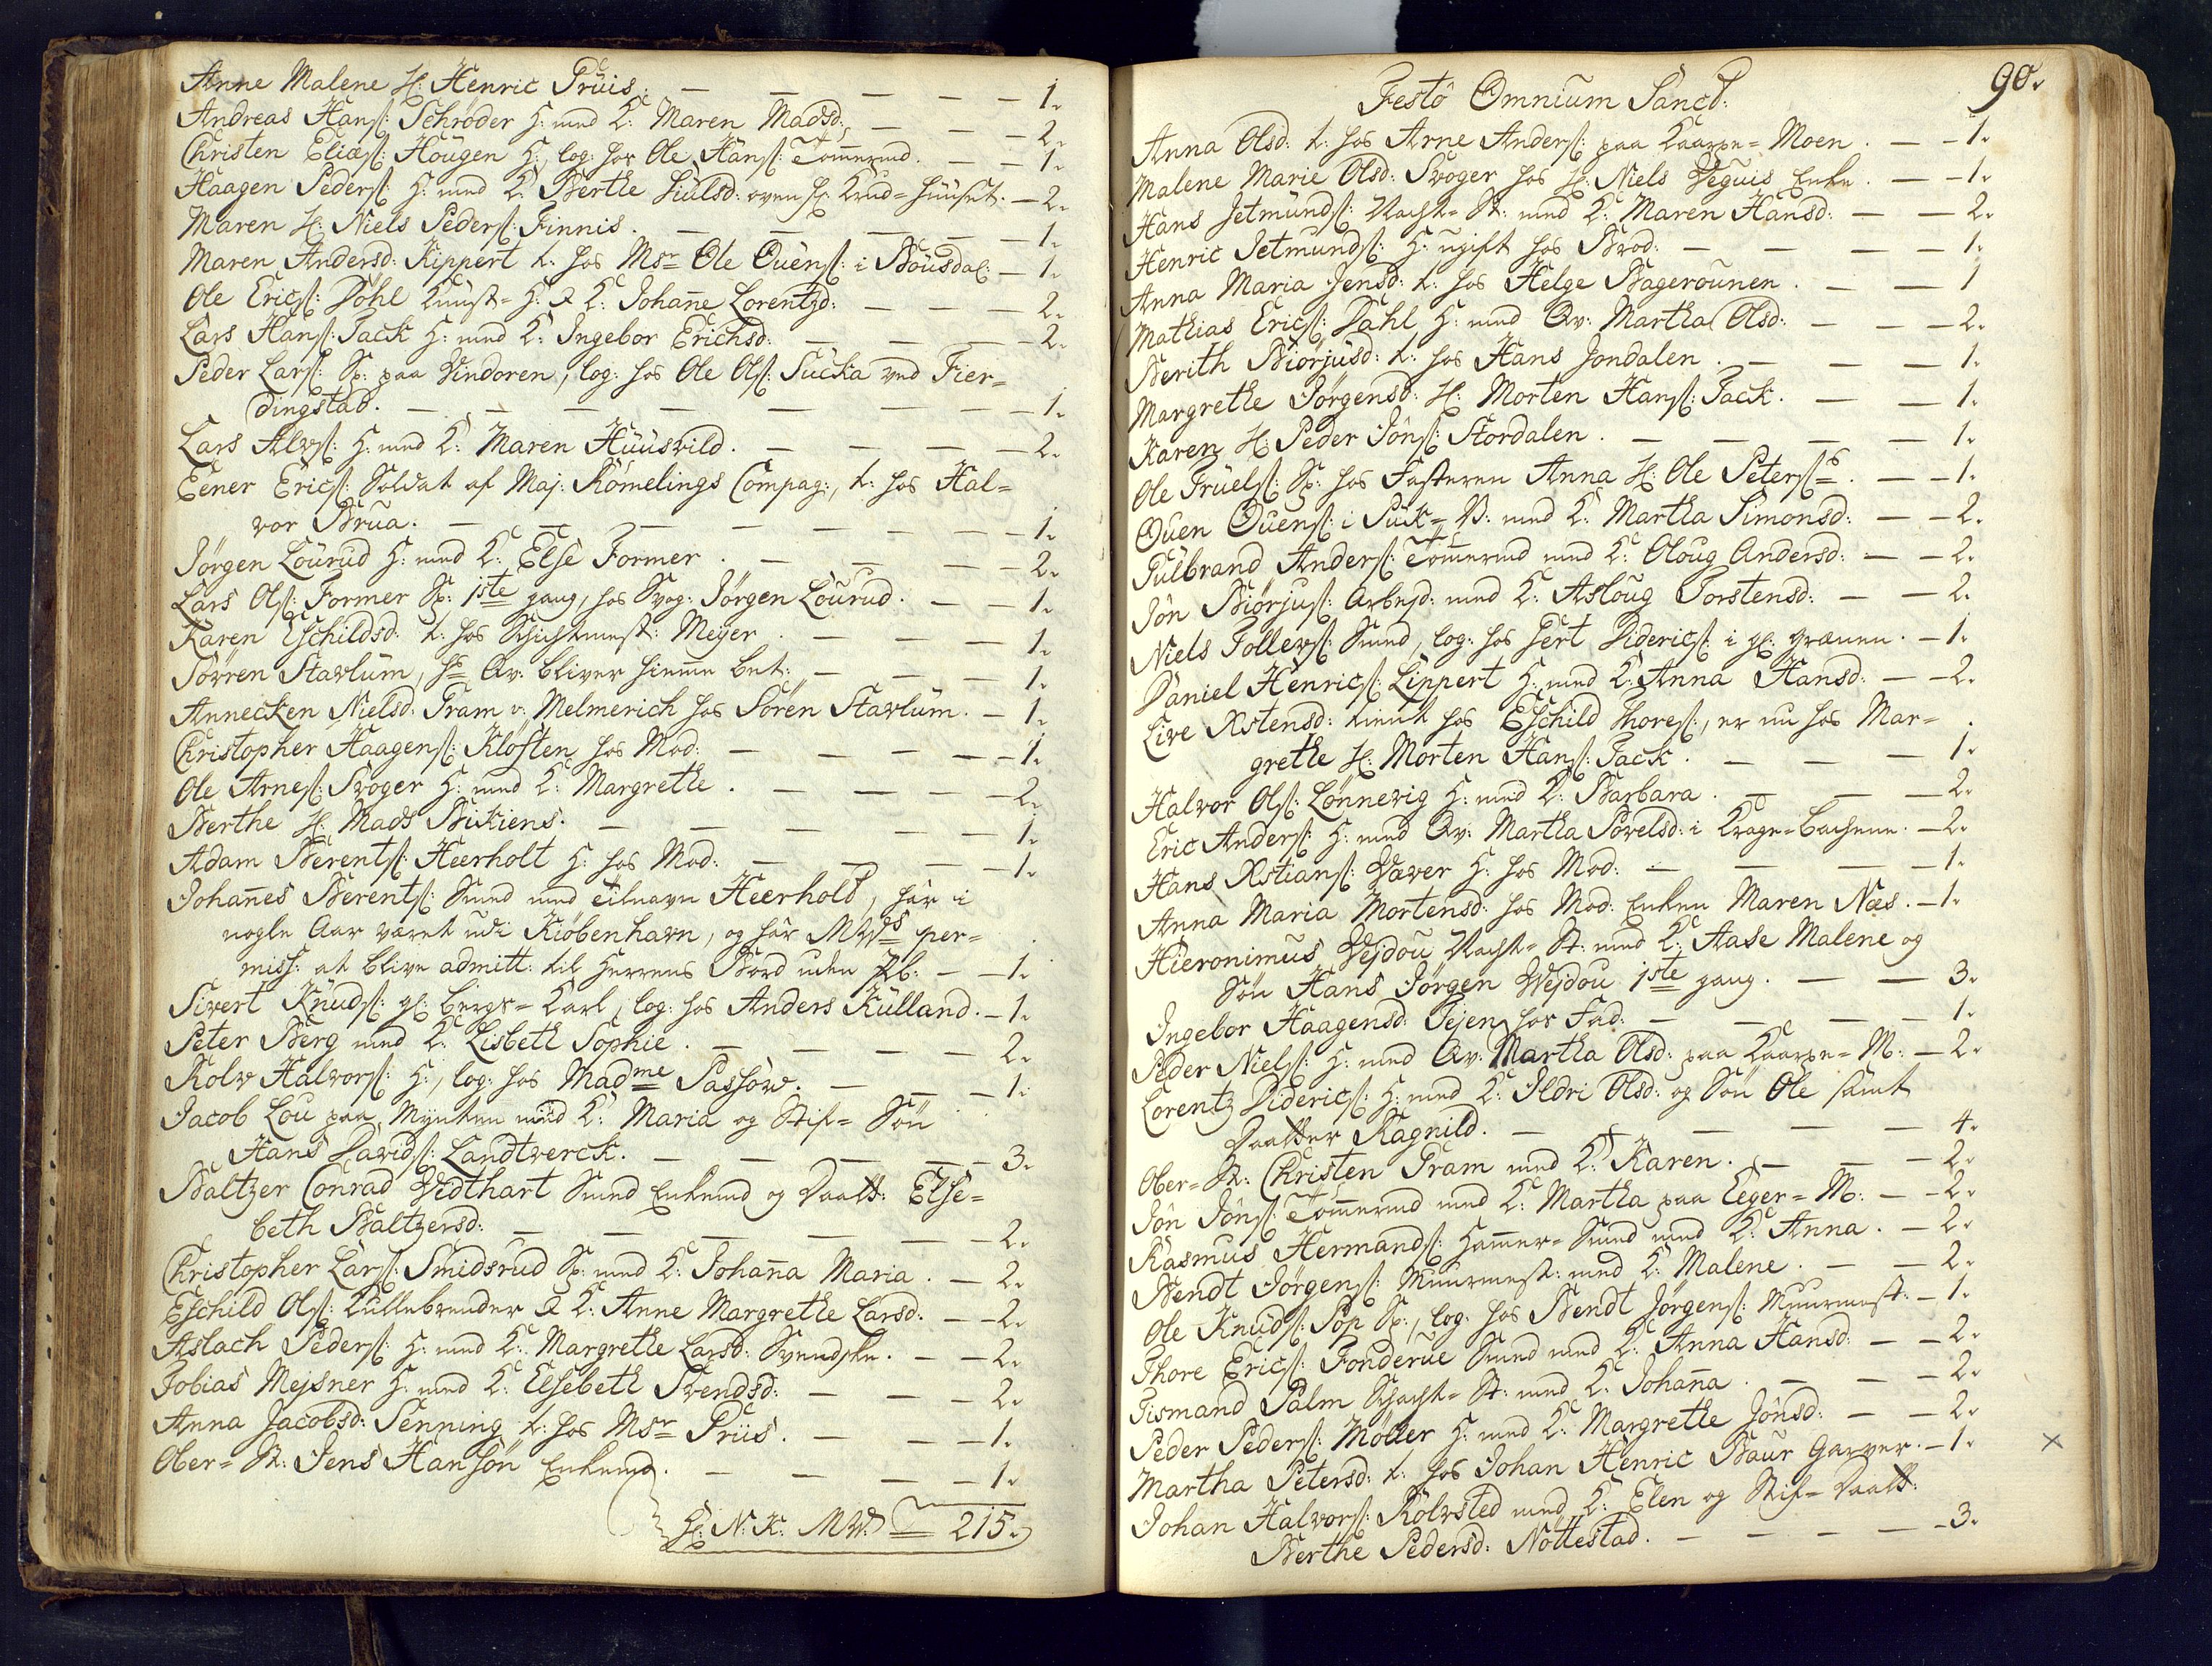 Anne Malene H: Henric Prüis. — — — — — 1.
Andreas Hanſ: Schrøder H: med K: Maren Madsd: — — — 2.
Christen Eliæſ: Hougen H:, log: hos Ole Hanſ: Tømmermd. — — 1.
Haagen Pederſ: H: med K: Berthe Juulsd: oven f: Krud-Huuset. — 2.
Maren H: Niels Pederſ: Finnis. — — — — — 1.
Maren Andersd: Kippert t: hos Msr Ole Ouenſ: i Bousdal: — 1.
Ole Ericſ: Dohl Kunst-H: & K: Johanne Lorentzd: — — — 2.
Lars Hanſ: Jack H: med K: Ingebor Erichsd: — — — 2.
Peder Larſ: Sp: paa Vindoren, log: hos Ole Olſ: Sucka ved Fier-
dingstad. — — — — — — — 1.
Lars Alvſ: H: med K: Maren Huusvild. — — — — 2.
Eener Ericſ: Soldat af Maj: Römelings Compag:, t: hos Hal-
vor Brua. — — — — — — — 1.
Jørgen Lourud H: med K: Else Former. — — — — 2.
Lars Olſ: Former Sp: 1ste gang, hos Svog: Jørgen Lourud. — — 1.
Karen Eschildsd: t: hos Schichtmest: Meyer. — — — 1.
Sörren Stavlum, hs Qv: bliver hiemme bet: — — — 1.
Annecken Nielsd: Tram v: Melmerich hos Sören Stavlum. — 1.
Christopher Haagenſ: Kloften hos Mod: — — — — 1.
Ole Arneſ: Svoger H: med K: Margrethe. — — — — 2.
Berthe H: Mads Bikiens. — — — — — 1.
Adam Berentſ: Heerholt H: hos Mod: — — — — 1.
Johannes Berentſ: Smed med tilnavn Heerhold, har i
nogle Aar været udi Kiøbenhavn, og har MWs per-
miss: at blive admitt: til Herrens Bord uden Pb: — — 1.
Sivert Knudſ: gl: bergs-Karl, log: hos Anders Külland. — 1.
Peter Berg med K: Lisbeth Sophie. — — — — 2.
Rolv Halvorſ: H:, log: hos Madme Passow. — — — 1.
Jacob Lou paa Mynten med K: Maria og Stif-Søn
Hans Davidſ: Landtverck. — — — — — 3.
Baltzer Conrad Vidthart Smed Enkemd og Daatt: Else-
beth Baltzersd: — — — — — — 2.
Christopher Larſ: Smidsrud Sp: med K: Johanna Maria. — 2.
Eschild Olſ: Kullebrender & K: Anne Margrethe Larsd: — — 2.
Aslach Pederſ: H: med K: Margrethe Larsd: Svendske. — — 2.
Tobias Mejsner H: med K: Elsebeth Svendsd: — — — 2.
Anna Jacobsd: Penning t: hos Msr Prüs. — — — 1.
Ober-St: Jens Hansøn Enkemd. — — — — 1.
H: N: K: MW: — 215.
90.
Festô Omnium Sanct:
Anna Olsd: t: hos Arne Anderſ: paa Kaarpe-Moen. — — 1.
Malene Marie Olsd: Svoger hos H: Niels Veguis Enke. — — 1.
Hans Jetmundſ: Nacht-St: med K: Maren Hansd: — — 2.
Henric Jetmundſ: H: ugift hos Brod: — — — — 1.
Anna Maria Jensd: t: hos Helge Bagerounen. — — 1
Mathias Ericſ: Dahl H: med Qv: Martha Olsd: — — — 2.
Berith Biorjusd: t: hos Hans Jondalen. — — — — 1.
Margrethe Jørgensd: H: Morten Hanſ: Jack. — — — 1.
Karen H: Peder Jönſ: Stordalen. — — — — 1.
Ole Truelſ: Sp: hos Fasteren Anna H: Ole Peterſs. — — 1.
Ouen Ouenſ: i Suk-B: med K: Martha Simonsd: — — 2.
Gulbrand Anderſ: Tømmermd med K: Oloug Andersd: — — 2.
Jön Biorjuſ: Arbejd: med K: Asloug Torstensd: — — 2.
Niels Tollevſ: Smed, log: hos Gert Didericſ: i gl: grænen. — 1.
Daniel Henricſ: Lippert H: med K: Anna Hansd: — — 2.
Live Xstensd: tient hos Eschild Thoreſ:, er nu hos Mar-
grethe H: Morten Hanſ: Jack. — — — — 1.
Halvor Olſ: Lonnevig H: med K: Barbara. — — — 2.
Eric Anderſ: H: med Qv: Martha Povelsd: i Krage-bachene. — 2.
Hans Xstianſ: Væver H: hos Mod: — — — — 1.
Anna Maria Mortensd: hos Mod: Enken Maren Næs. — 1.
Hieronimus Vejdou Nacht-St: med K: Aase Malene og
Søn Hans Jörgen Wejdou 1ste gang. — — — 3.
Ingebor Haagensd: Tejen hos Fad: — — — — 1.
Peder Nielſ: H: med Qv: Martha Olsd: paa Kaarpe-M: — 2.
Lorentz Didericſ: H: med K: Ildri Olsd: og Søn Ole samt
Daatter Ragnild. — — — — — 4.
Ober-St: Christen Tram med K: Karen. — — — 2.
Jön Jönſ: Tømmermd med K: Martha paa Eeger-M: — — 2.
Rasmus Hermandſ: Hammer-Smed med K: Anna. — 2.
Bendt Jörgenſ: Muurmest: med K: Malene. — — 2.
Ole Knudſ: Pop Sp:, log: hos Bendt Jörgenſ: Muurmest: — 1.
Thore Ericſ: Fonderue Smed med K: Anna Hansd: — — 2.
Tismand Palm Schacht-St: med K: Johanna. — — — 2.
Peder Pederſ: Møller H: med K: Margrethe Jönsd: — — 2.
Martha Petersd: t: hos Johan Henric Baur Garver. — 1. ×
Johan Halvorſ: Kolvsted med K: Elen og Stif-Daatt:
Berthe Pedersd: Nottestad. — — — — — 3.